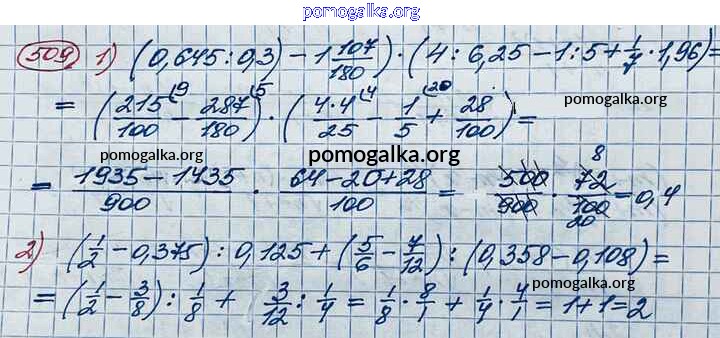 pomogalka.org
509 1) (0,645 : 0,3) - 1 107/180) · (4 : 6,25 - 1 : 5 + 1/7 · 1,96) =
= (215/100 (9 - 287/180 (5) · (4·4/25 (4 - 1/5 (20 + 28/100) = pomogalka.org
pomogalka.org pomogalka.org
= 1935 - 1435/900 · 64 - 20 + 28/100 = 500/900 · 72/100 = 0,4
8
20
2) (1/2 - 0,375) : 0,125 + (5/6 - 7/12) : (0,358 - 0,108) =
= (1/2 - 3/8) : 1/8 + 3/12 : 1/4 = 1/8 · 8/1 + 1/4 · 4/1 = 1 + 1 = 2